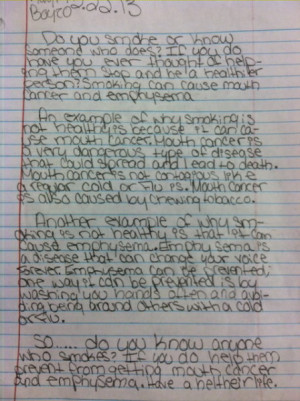 Boyce 2.02.13
Do you smoke or know
someone who does? If you do
have you ever thought of help-
ing them stop and be a healthier
person? Smoking can cause mouth
cancer and emphysema.
An example of why smoking is
not healthy is because it can ca-
use mouth cancer. Mouth cancer is
a very dangerous type of disease
that could spread and lead to death.
Mouth cancer is not contagious like
a regular cold or Flu is. Mouth cancer
is also caused by chewing tobacco.
Another example of why sm-
oking is not healthy is that it can
cause emphysema. Emphysema is
a disease that can change your voice
forever. Emphysema can be prevented,
one way it can be prevented is by
washing you hands often and avoi-
ding being around others with a cold
or Flu.
So..... do you know anyone
who smokes? If you do help them
prevent from getting mouth cancer
and emphysema. Have a heltheir life.